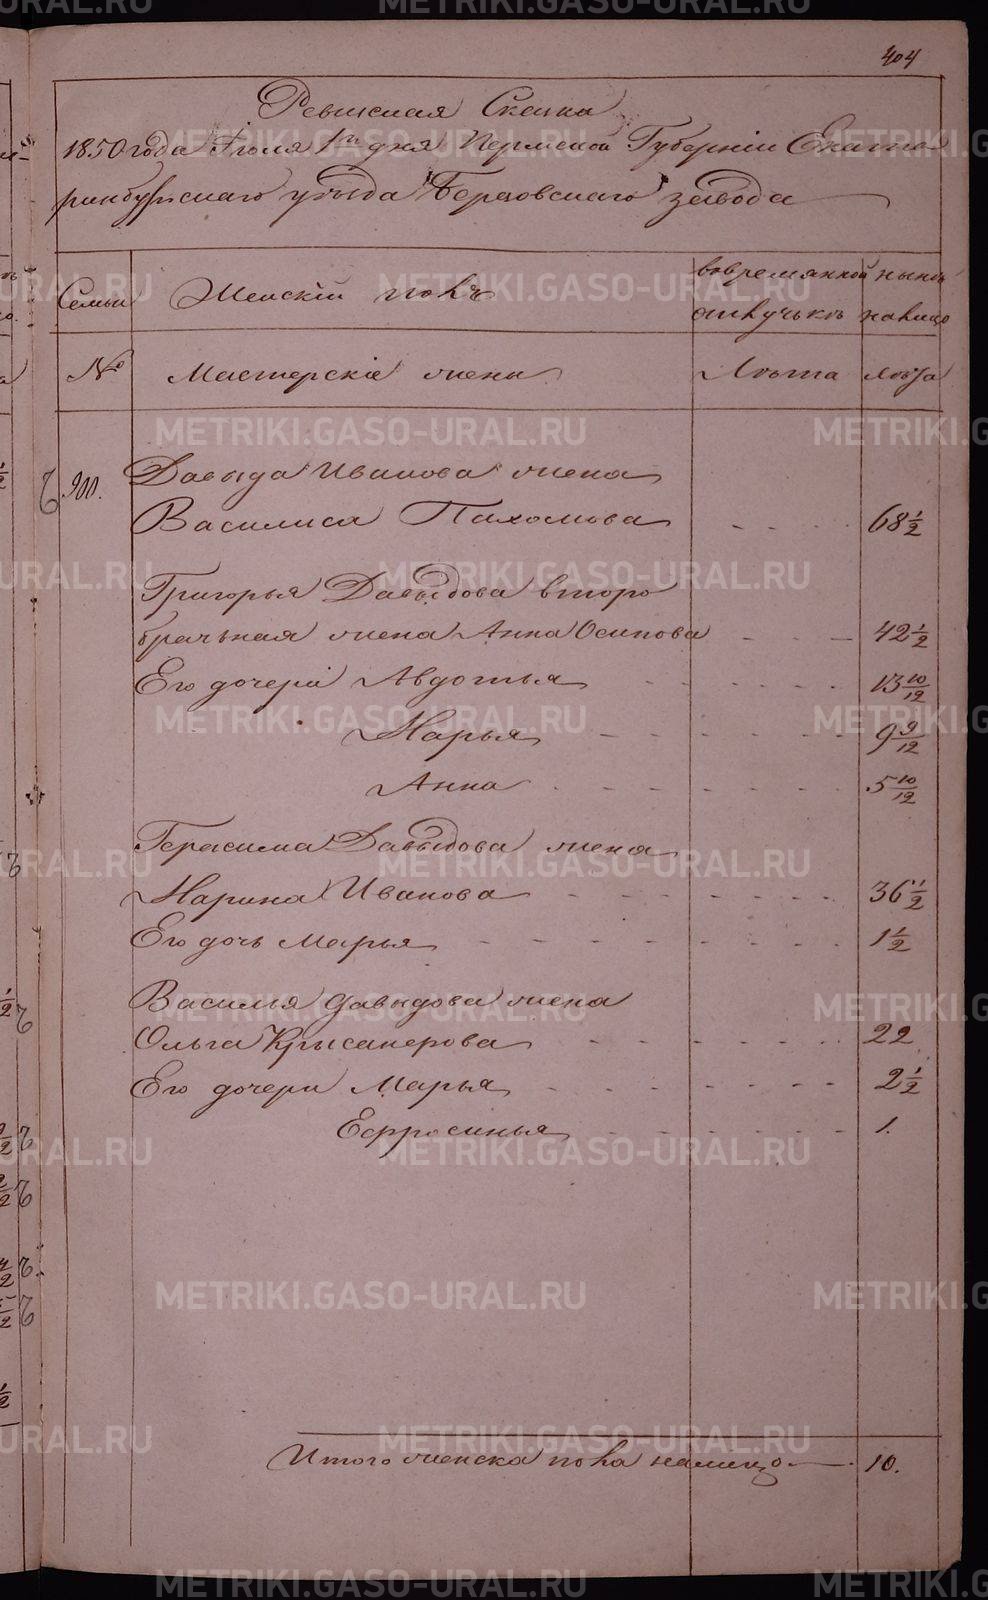 404
Ревизская Сказка
1850 года Іюля 1го дня Пермской Губерніи Екате
ринбургскаго уѣзда Березовскаго завода
Семьи Женскій полъ во временной отлучькѣ нынѣ на лицо
№ Мастерскіе жены Лѣта Лѣта
900. Давыда Иванова жена
Василиса Пахомова 68 1/2
Григорья Давыдова второ
брачьная жена Анна Осипова 42 1/2
Его дочери Авдотья 13 10/12
Марья 9 9/12
Анна 5 10/12
Герасима Давыдова жена
Марина Иванова 36 1/2
Его дочь Марья 1 1/2
Василья Давыдова жена
Ольга Крысанфрова 22
Его дочери Марья 2 1/2
Ефросинья 1.
Итого женска пола налицо 10.
METRIKI.GASO-URAL.RU